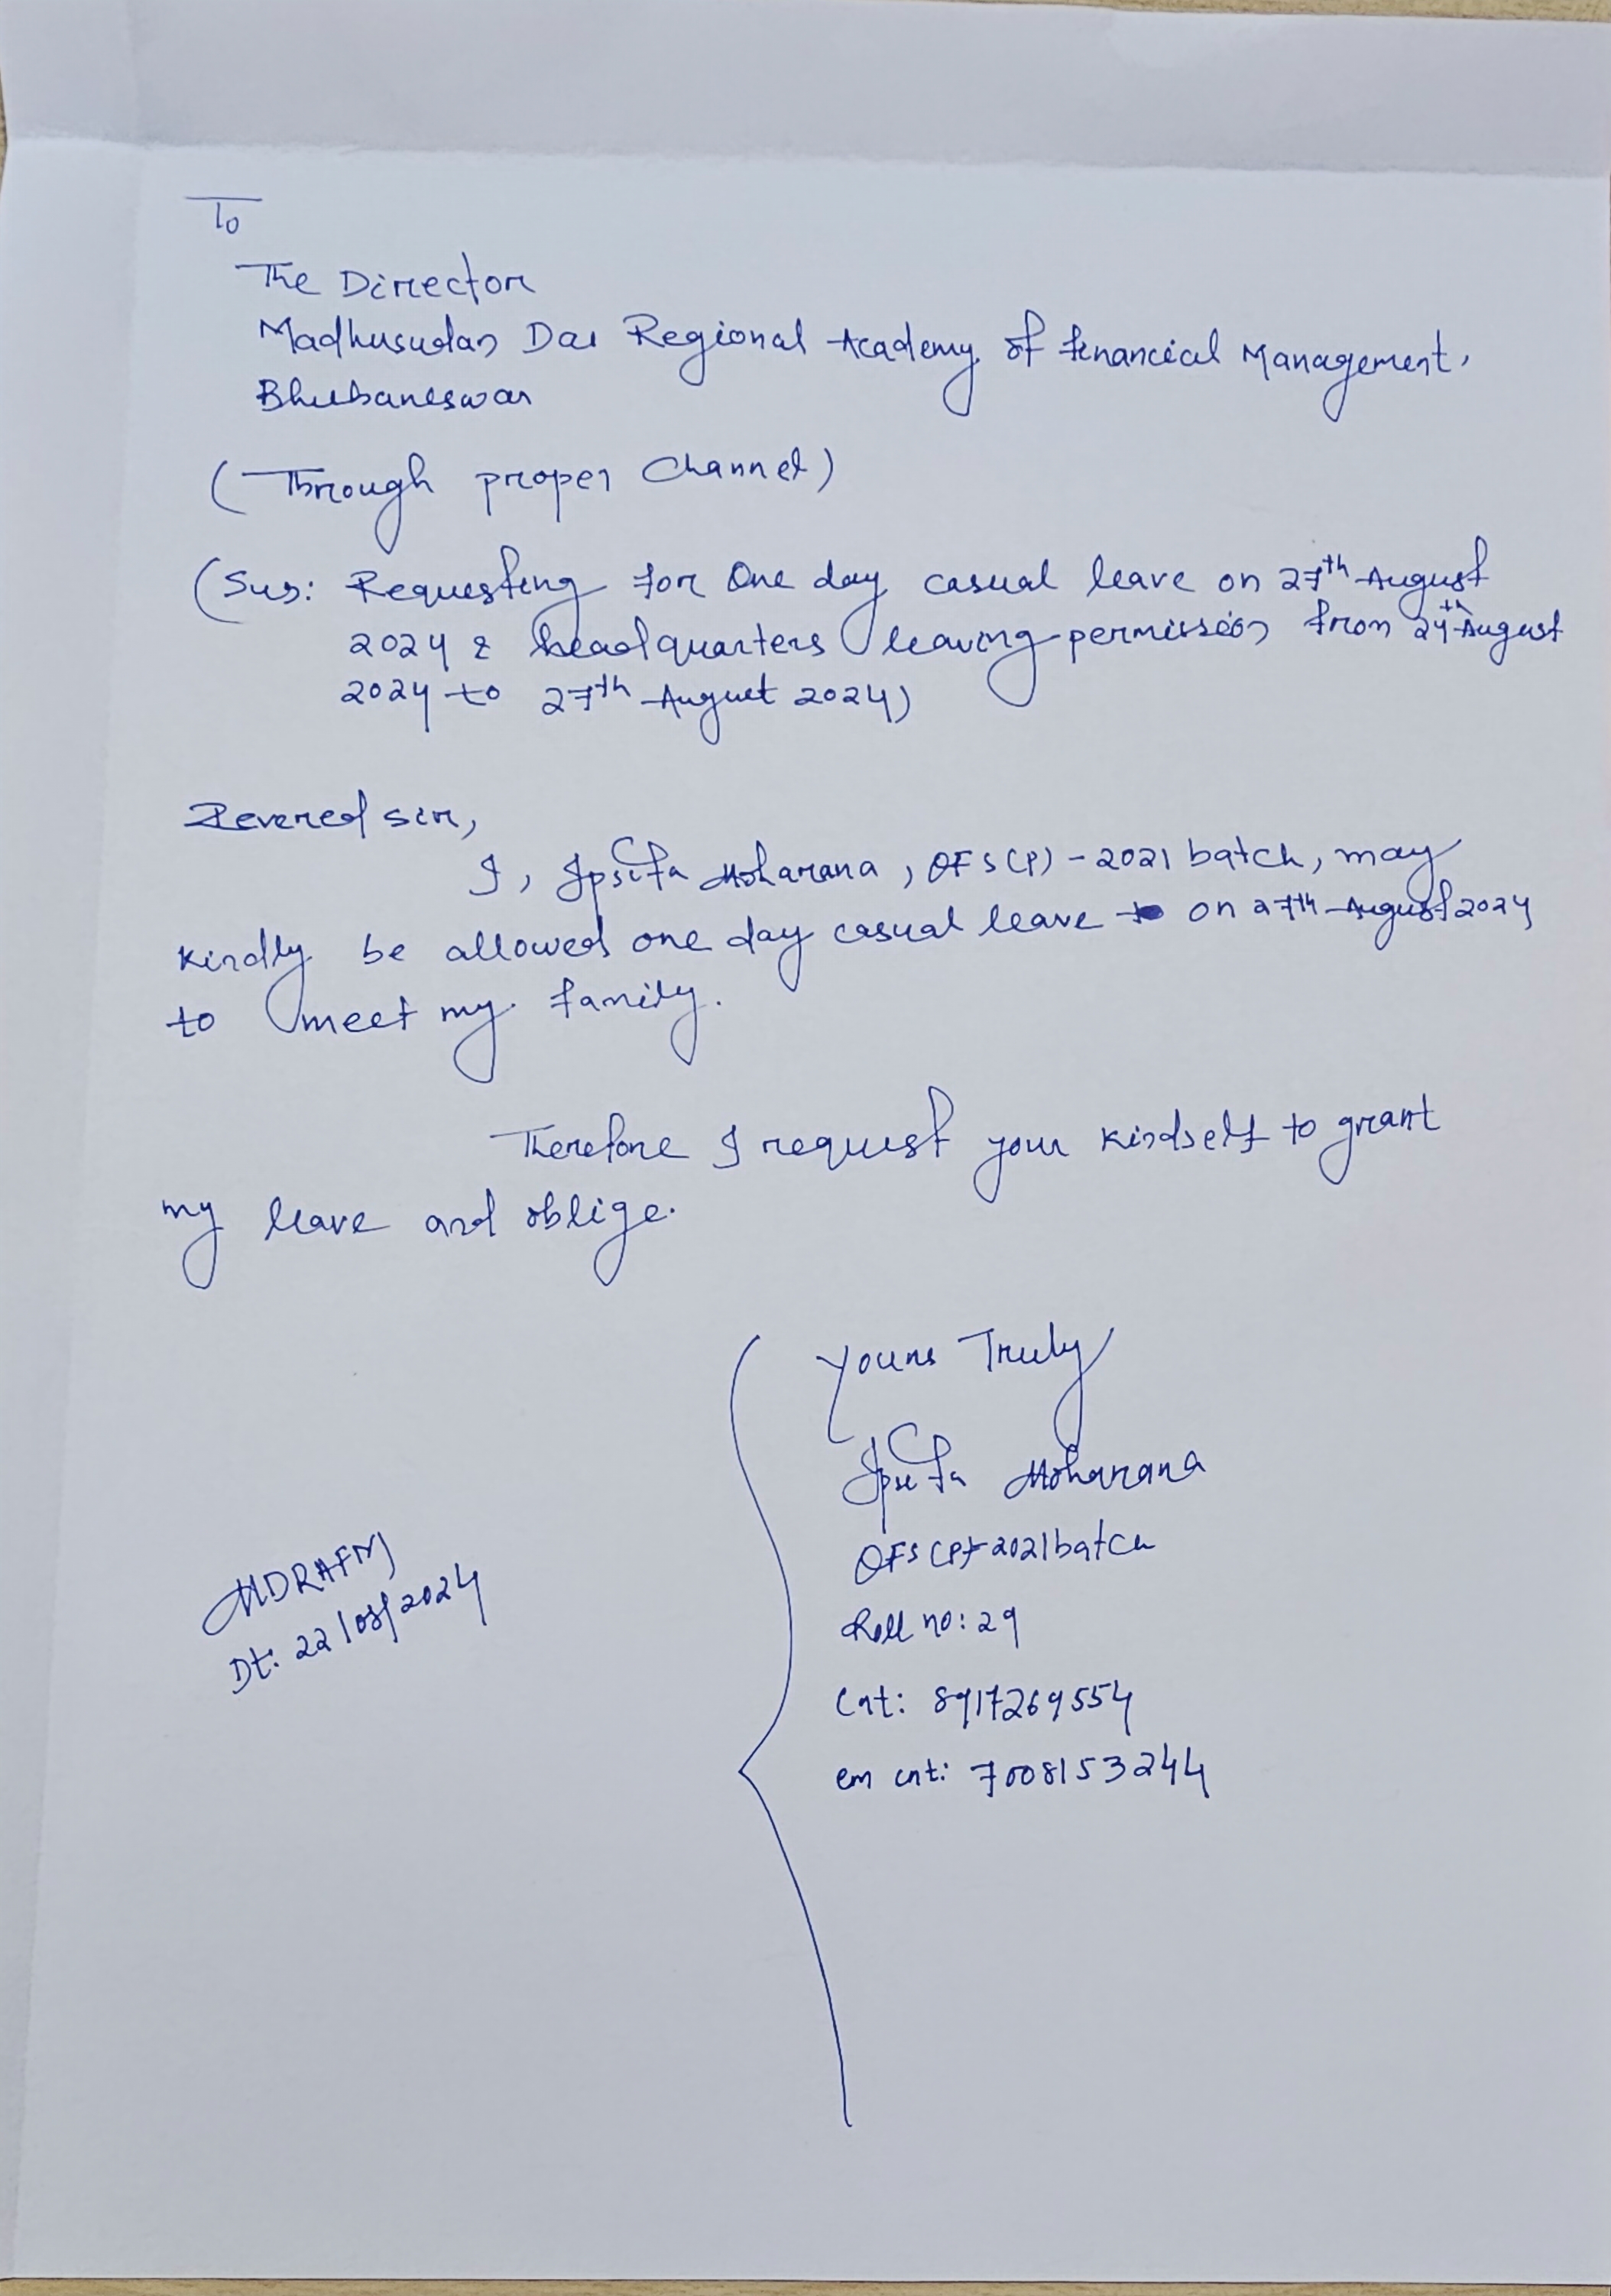 To
The Director
Madhusudan Das Regional Academy of Financial Management,
Bhubaneswar
(Through proper Channel)
(Sub: Requesting for One day casual leave on 27th August
2024 & headquarters leaving permission from 24th August
2024 to 27th August 2024)
Revered sir,
I, Ipsita Moharana, OFS(P) - 2021 batch, may
kindly be allowed one day casual leave on 27th August 2024
to meet my family.
Therefore I request your kindself to grant
my leave and oblige.
Yours Truly
Ipsita Moharana
OFS(P)-2021 batch
Roll no: 29
Cnt: 8917269554
em cnt: 7008153244
MDRAFM
Dt: 22/08/2024